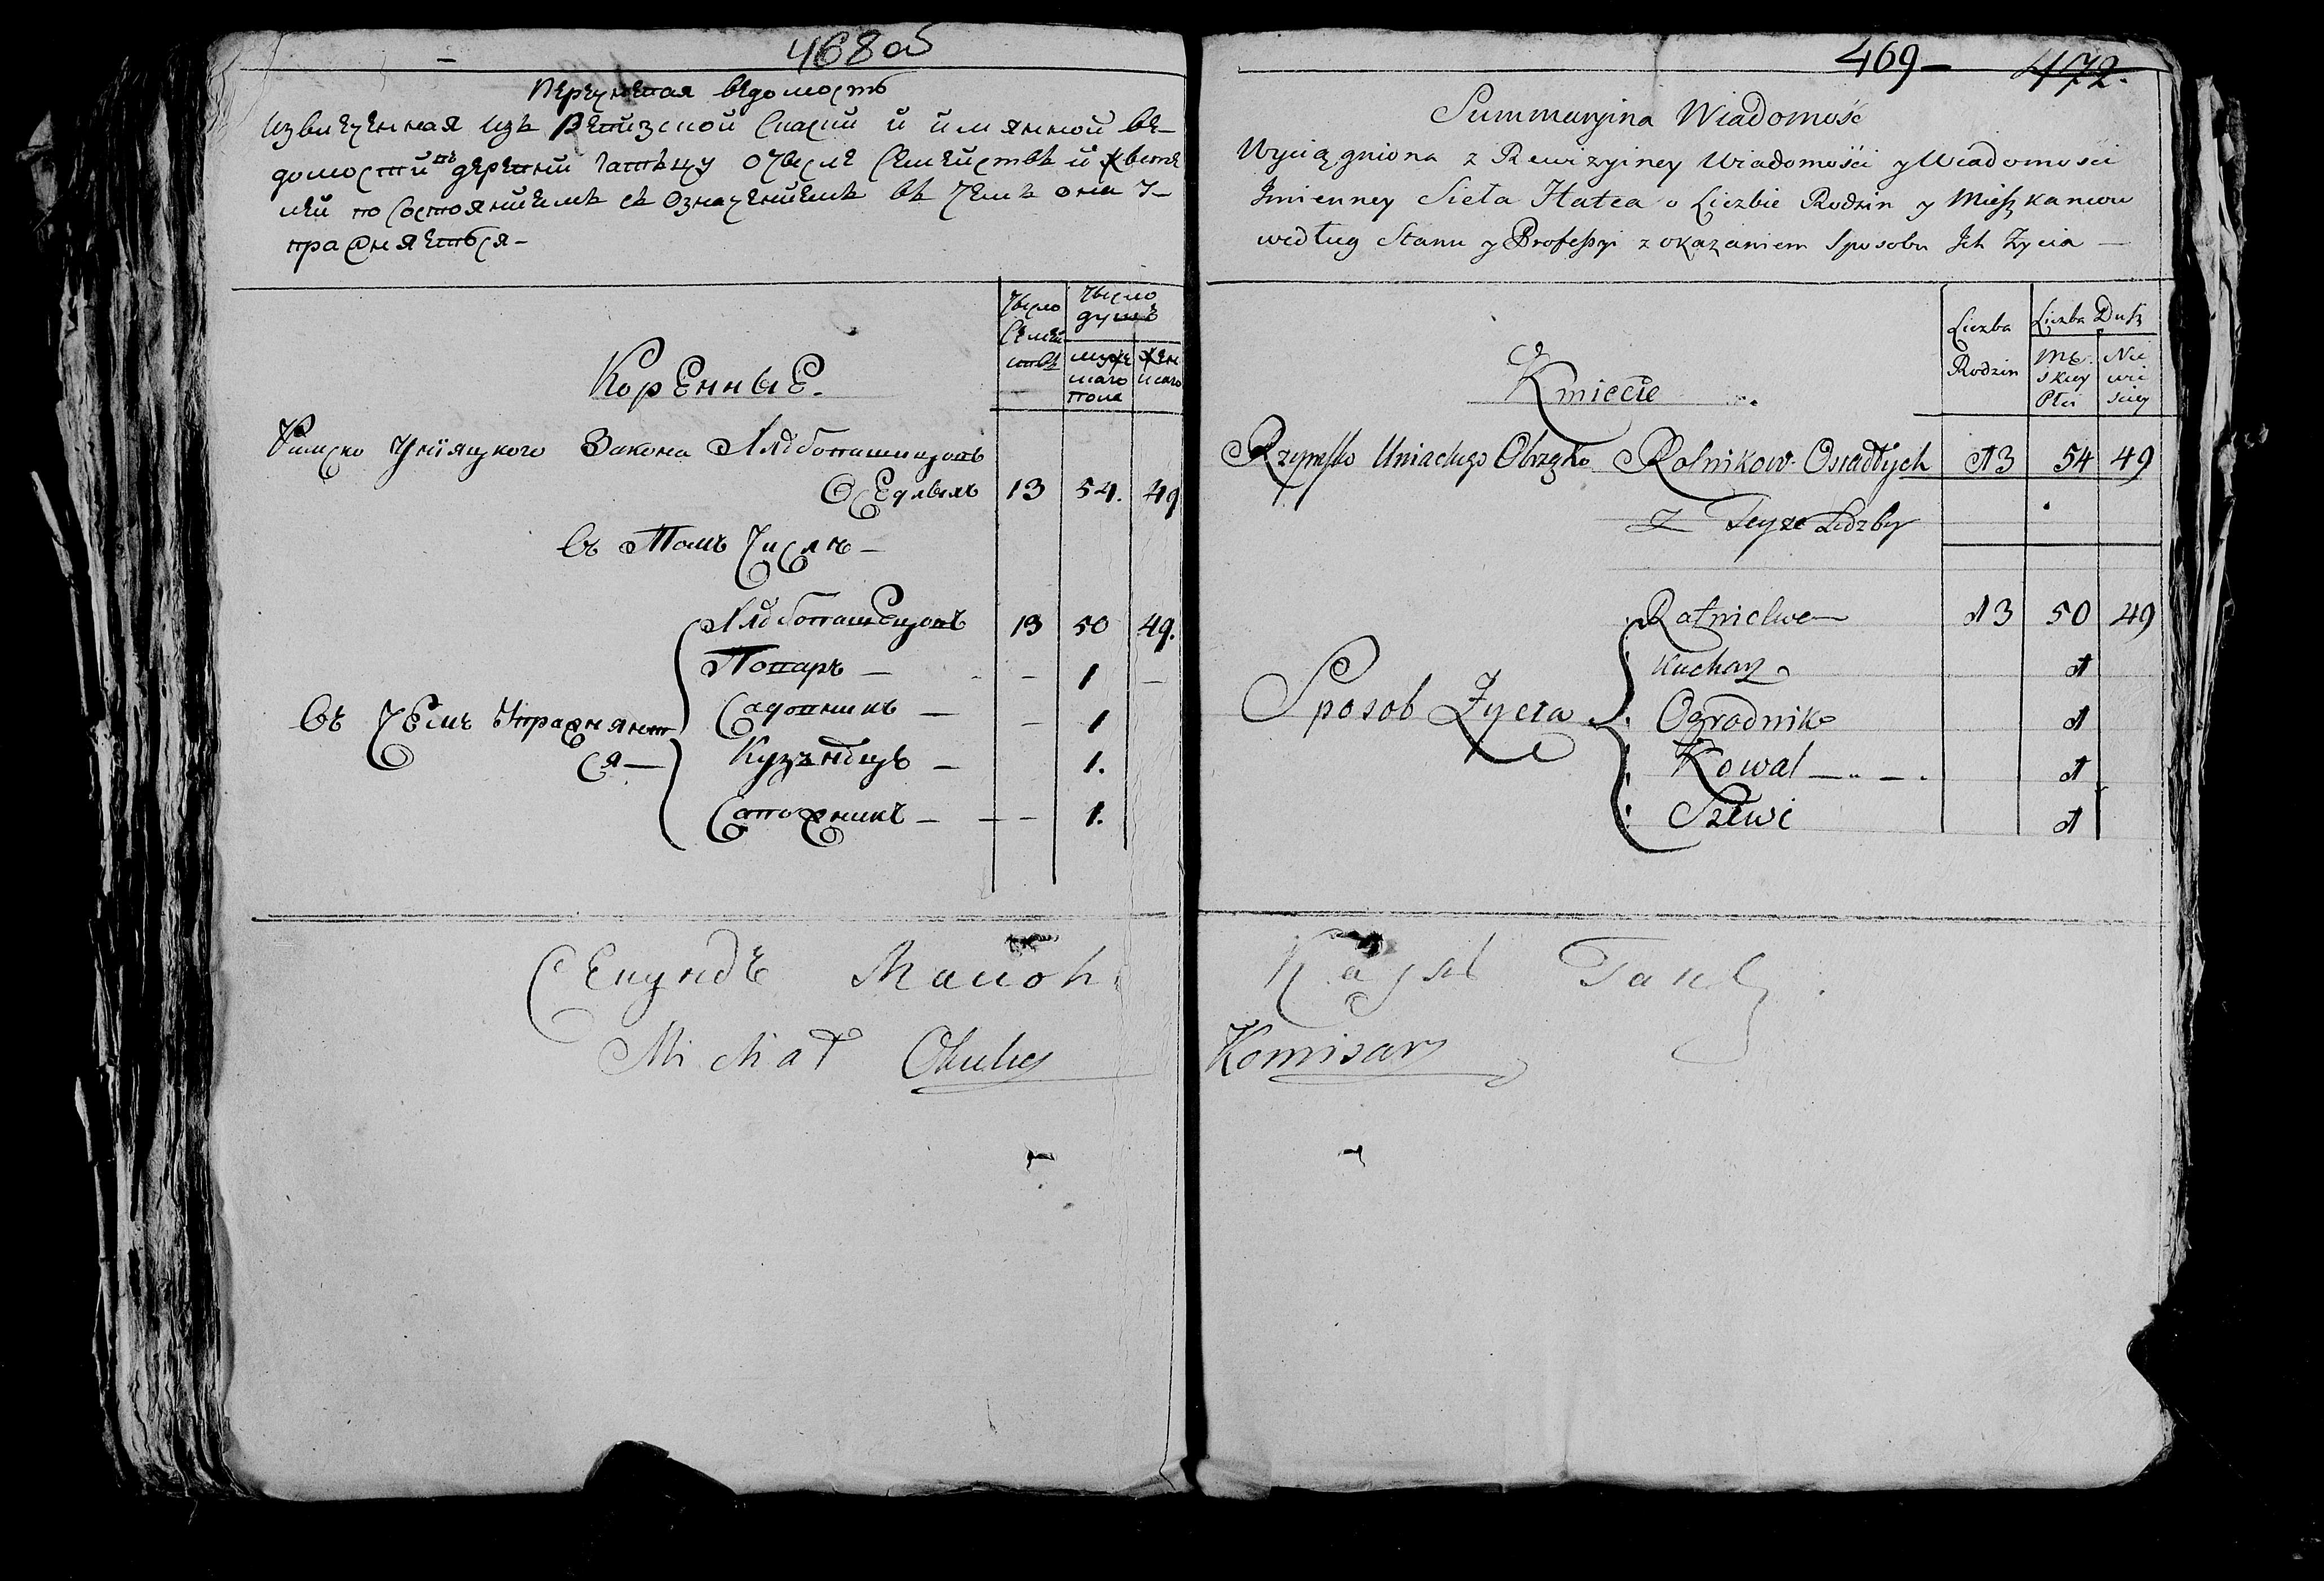 468 об
Перечневая ведомость
Извлеченная изъ Ревизской Сказки и имянной ве-
домости въ деревни о числе Семействъ и жите
лей по Состоянииемъ съ Означениемъ въ чемъ они У-
пражняеться-
число Семействъ
число душъ
мужескаго пола
женскаго
Коренные.
Римско Униятского Закона Хлебопашцовъ
Оседлыхъ 13 54. 49
Въ Томъ Числе -
Хлебопашецовъ 13 50 49.
Поваръ - - 1 -
Въ Чемъ Упражняют
ся -
Садовникъ - - 1
Кузънецъ - 1.
Сапожникъ - - - 1.
Секундъ Маиоръ
Michał
469 - 472.
Summaryina Wiadomość
Wyciągniona z Rewizyiney Wiadomości y Wiadomości
Jmienney Sieła Hatca o Liczbie Rodzin y Mieszkancow
według Stanu y Professyi z okazaniem Sposobu Jch Zycia -
Liczba Rodzin
Liczba Dusz
Męskiey Płci
Niewisciey
Kmiecie
Rzymsko Uniackego Obrządko Rolnikow Osiadłych 13 54 49
z Teyze Lidzby
Rolnictwem 13 50 49
Kucharz 1
Sposob Zycia Ogrodnik 1
Kowal 1
Szewc 1
Komisarz